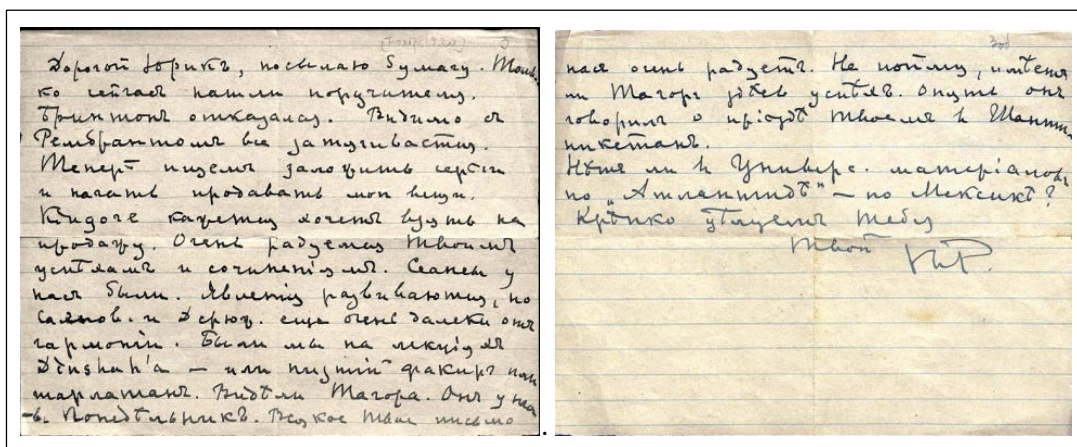 Дорогой Юрикъ, посылаю бумагу. Толь-
ко сейчас нашли поручителя.
Бринтонъ отказался. Видимо съ
Рембрантомъ все затягивается.
Теперь идемъ заложить серьги
и начать продавать мои вещи.
Кидоге кажется хочетъ взять на
продажу. Очень радуемся твоимъ
успѣхамъ и сочиненіямъ. Сеансы у
насъ были. Явленія развиваются, но
и еще очень далеки отъ
гармоніи. Были мы на лекціяхъ
Dinshah'а — или низшій факиръ или
шарлатанъ. Видѣли Тагора. Онъ у нас
въ понедѣльникъ. Всякое твое письмо
3об
насъ очень радуетъ. Не пойму, имѣетъ
ли Тагоръ здѣсь успѣхъ. Опять онъ
говорилъ о пріѣздѣ твоемъ в Шанти-
никетанъ.
Нѣтъ ли в Универс. матеріаловъ
по „Атлантидѣ" — по Мексикѣ?
Крѣпко цѣлуемъ тебя
Твой НР.